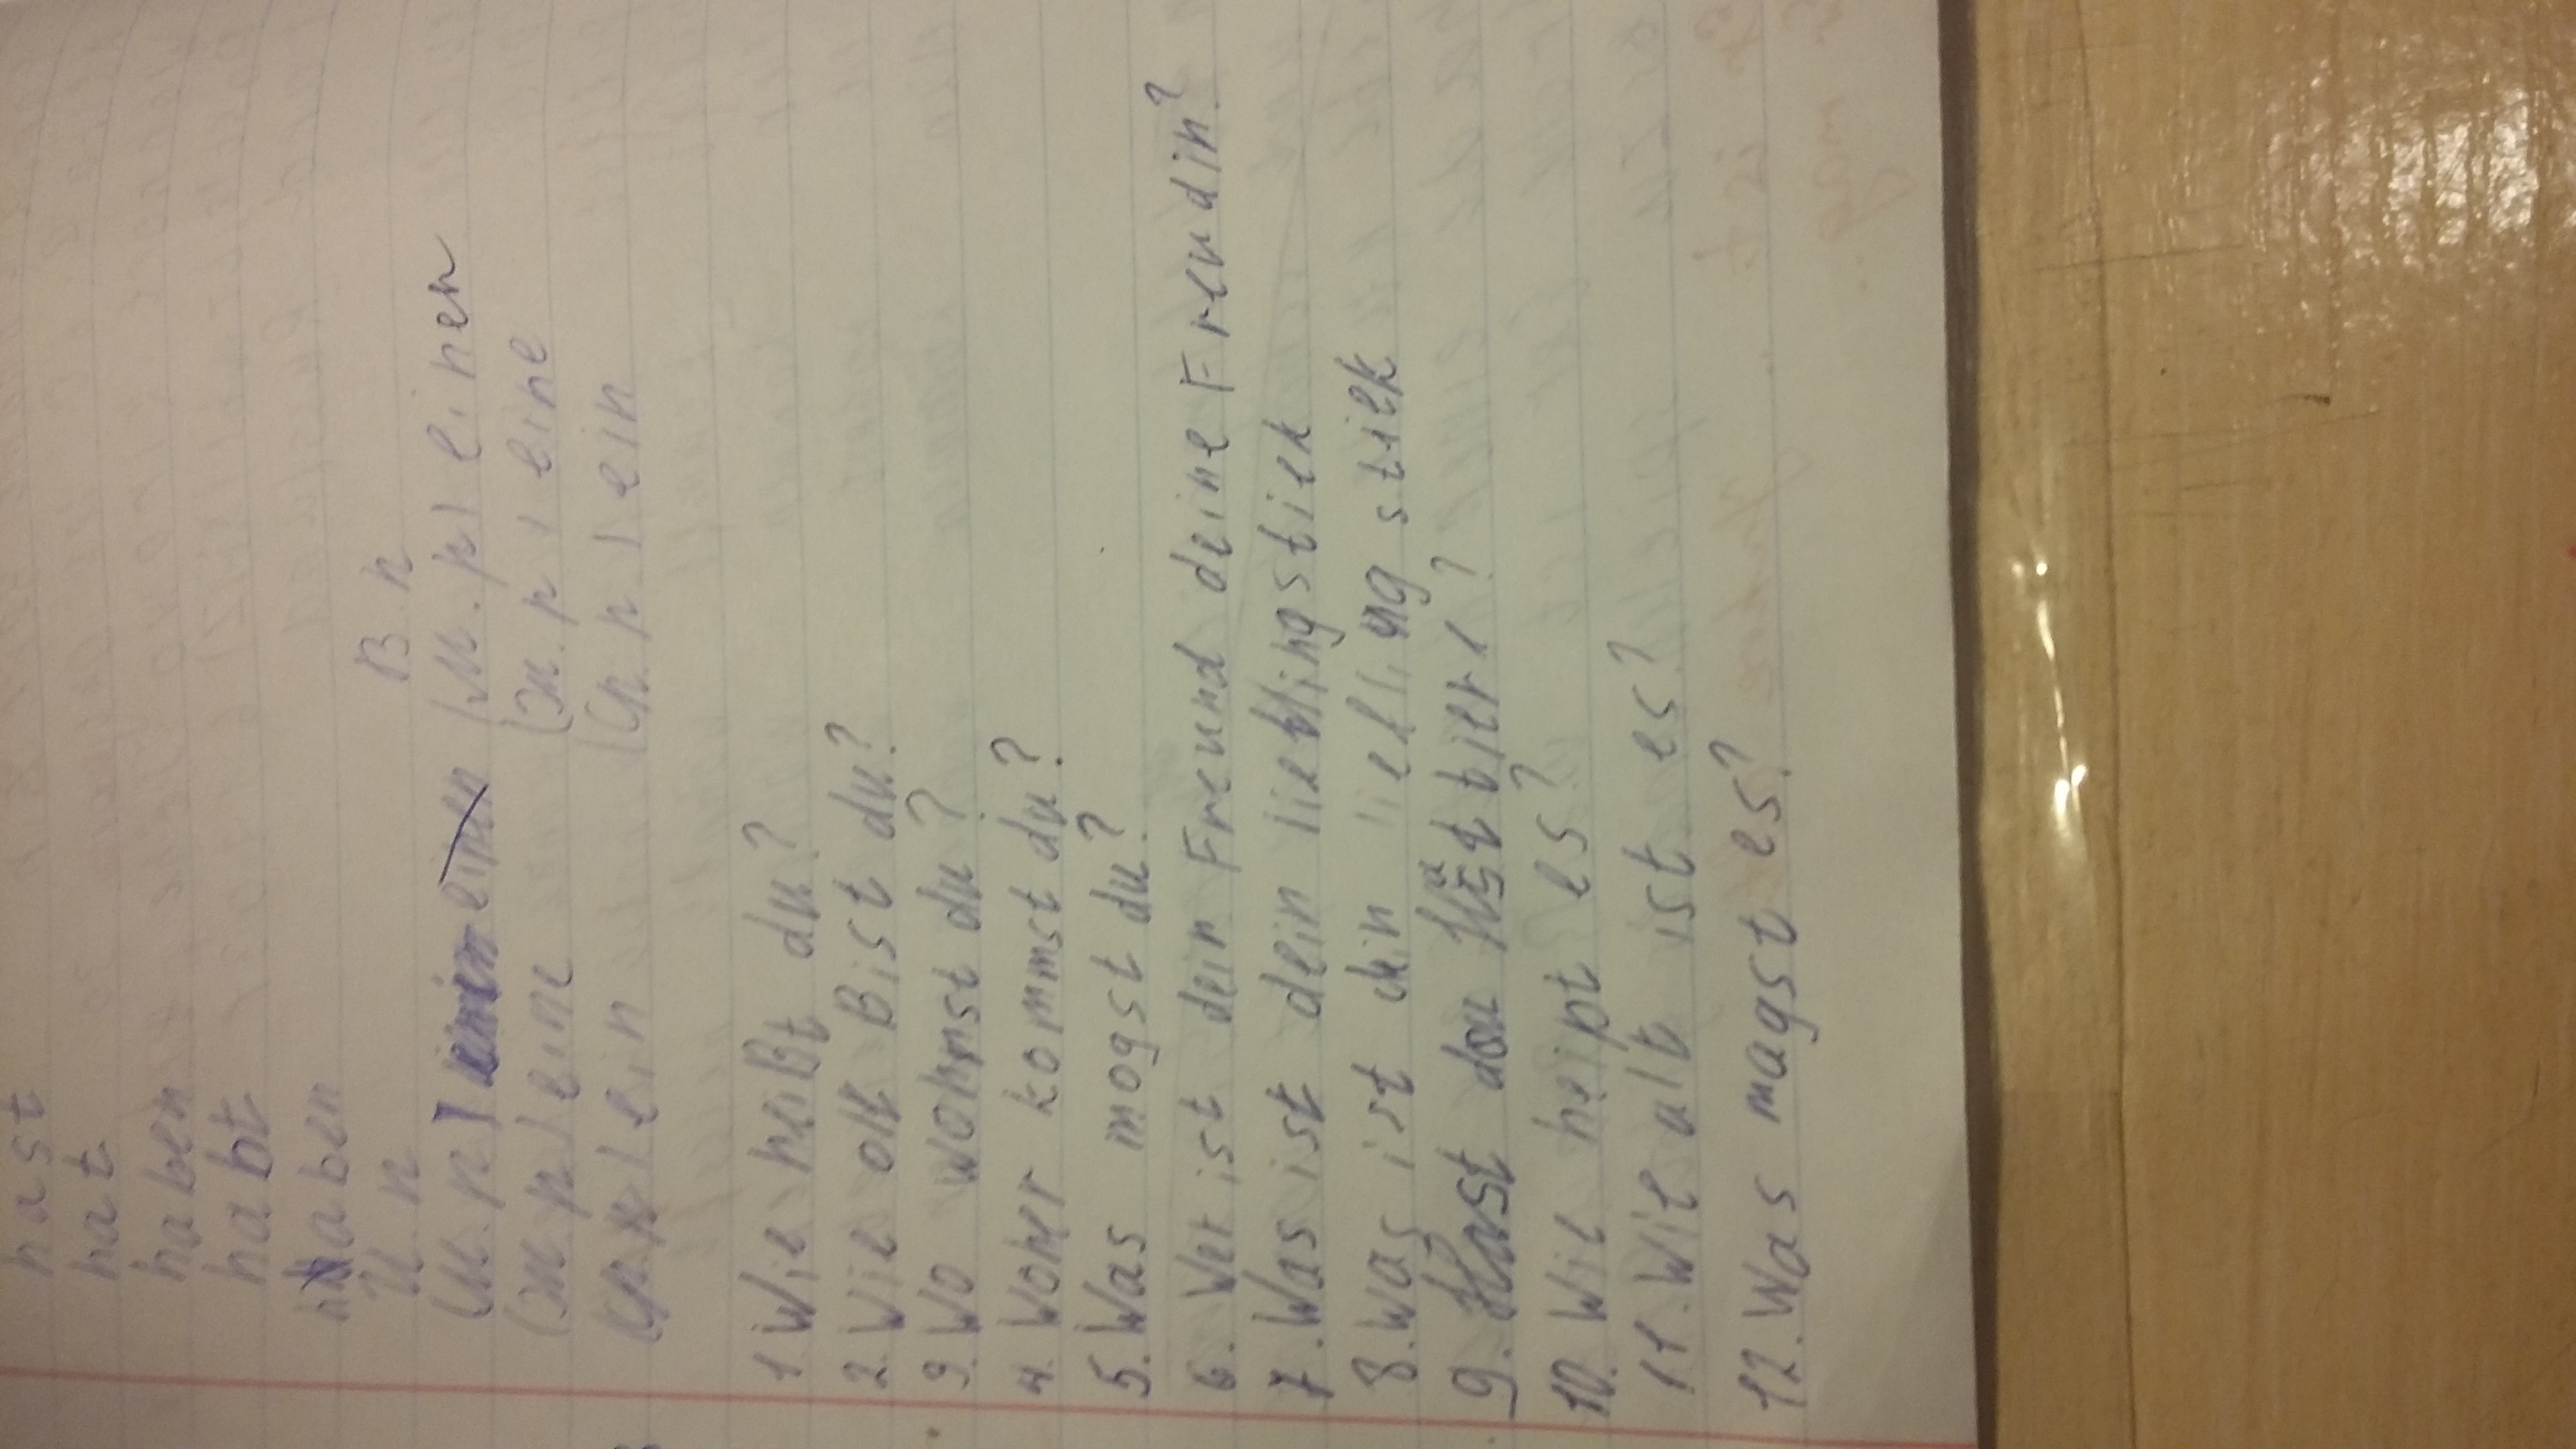 hast
hat
haben
habt
haben
И п В п
(м.р) einen (м.р) einen
(ж.р) eine (ж.р) eine
(ср.р) ein (ср.р) ein
1 Wie heißt du?
2. Wie olt Bist du?
3. Wo wohnst du?
4. Woher kommst du?
5. Was mogst du?
6. Wer ist dein Freund deine Freudin?
7. Was ist dein lieblingstiek
8. Was ist dein liebling stiek
9. Hast du Haustier?
10. Wie heipt es?
11. Wie alt ist es?
12. Was magst es?